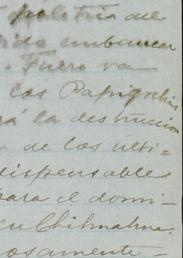 política del
embancar
. Fuero va
los Papigochis
rá la destrucción
a de los últi-
dispensables
para el domi-
en Chihuahua.
osamente-